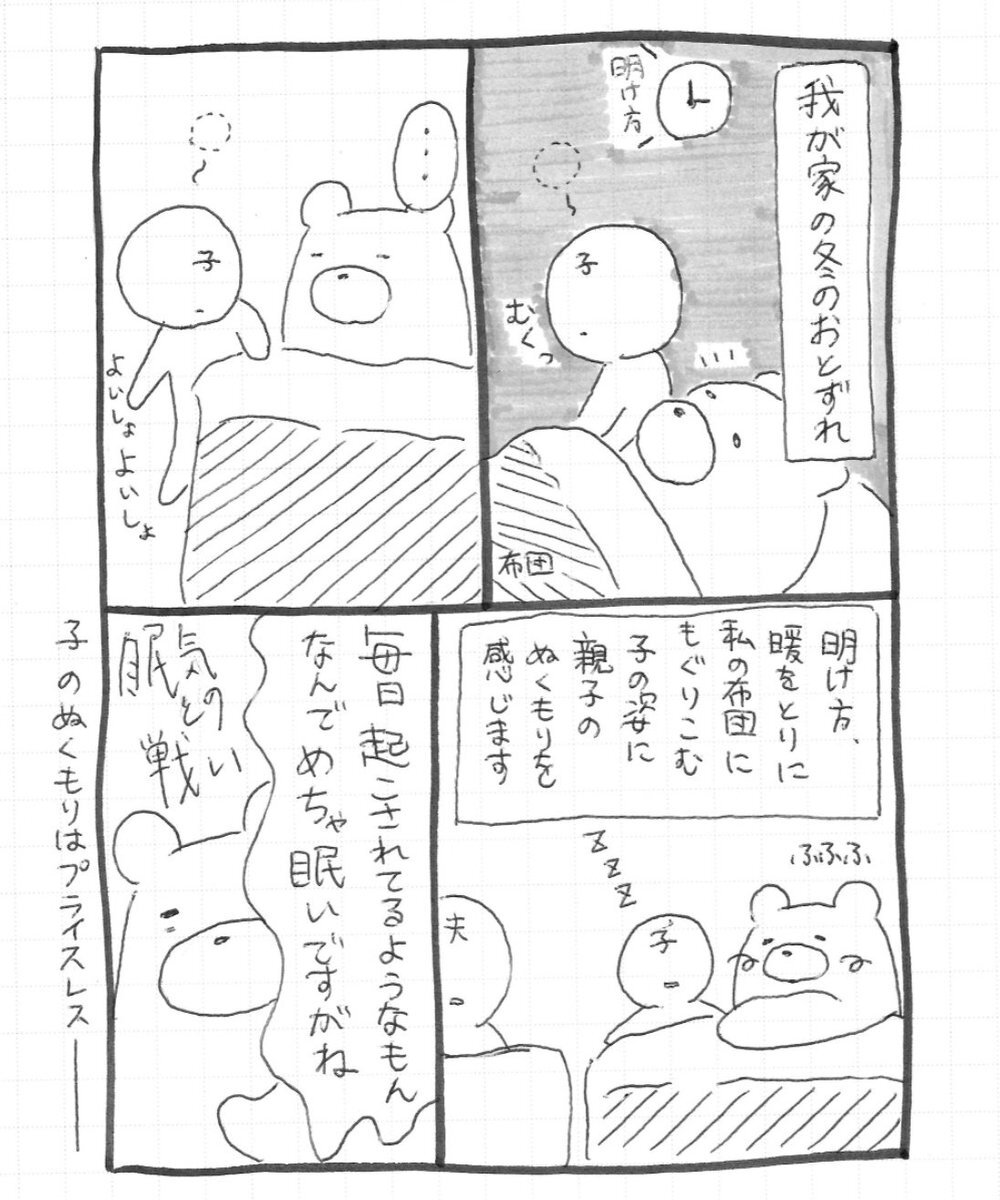 我が家の冬のおとずれ
明け方
子
むくっ
布団
…
子
よいしょよいしょ
明け方、
暖をとりに
私の布団に
もぐりこむ
子の姿に
親子の
ぬくもりを
感じます
ふふふ
子
zzz
夫
毎日起こされてるようなもん
なんでめちゃ眠いですがね
眠気との戦い
子のぬくもりはプライスレス――